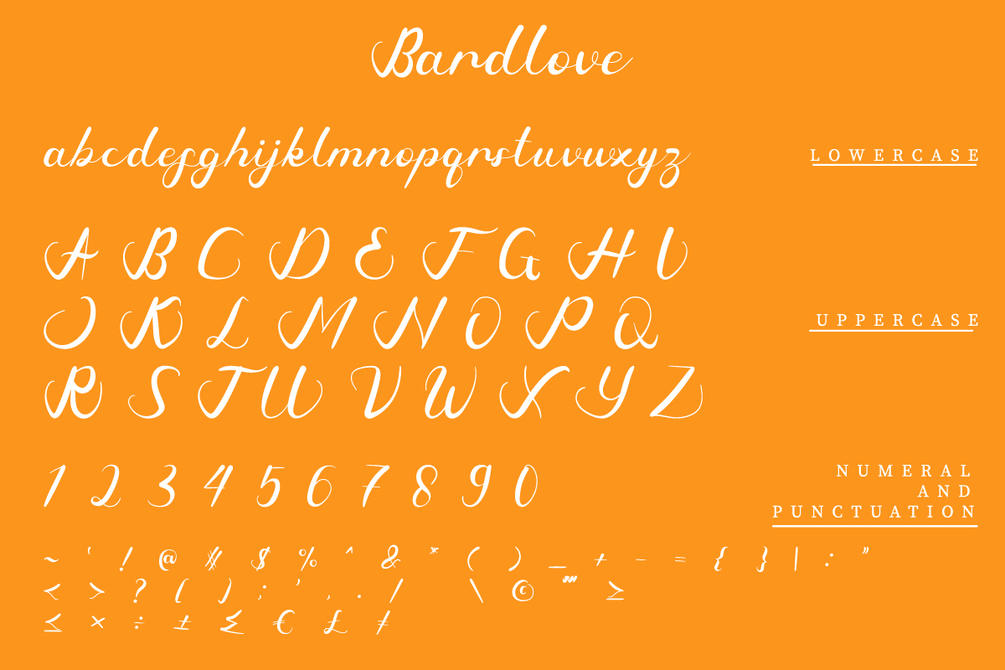 Bardlove
abcdefghijklmnopqrstuvwxyz
LOWERCASE
A B C D E F G H I
J K L M N O P Q
UPPERCASE
R S T U V W X Y Z
1 2 3 4 5 6 7 8 9 0
NUMERAL
AND
PUNCTUATION
~ ` ! @ # $ % ^ & * ( ) _ + - = { } | : "
< > ? ( ) ; ' , . / \ © ≥
≤ × ÷ ± € £ ≠